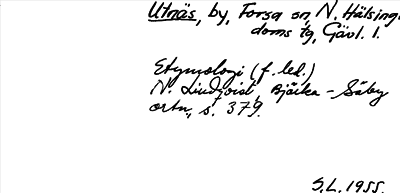 Utnäs, by, Forsa sn, N. Hälsing-
doms tg, Gävl. l.
Etymologi (f. led.)
N. Lindqvist, Bjärka-Säby
ortn., s. 379.
S.L. 1955.